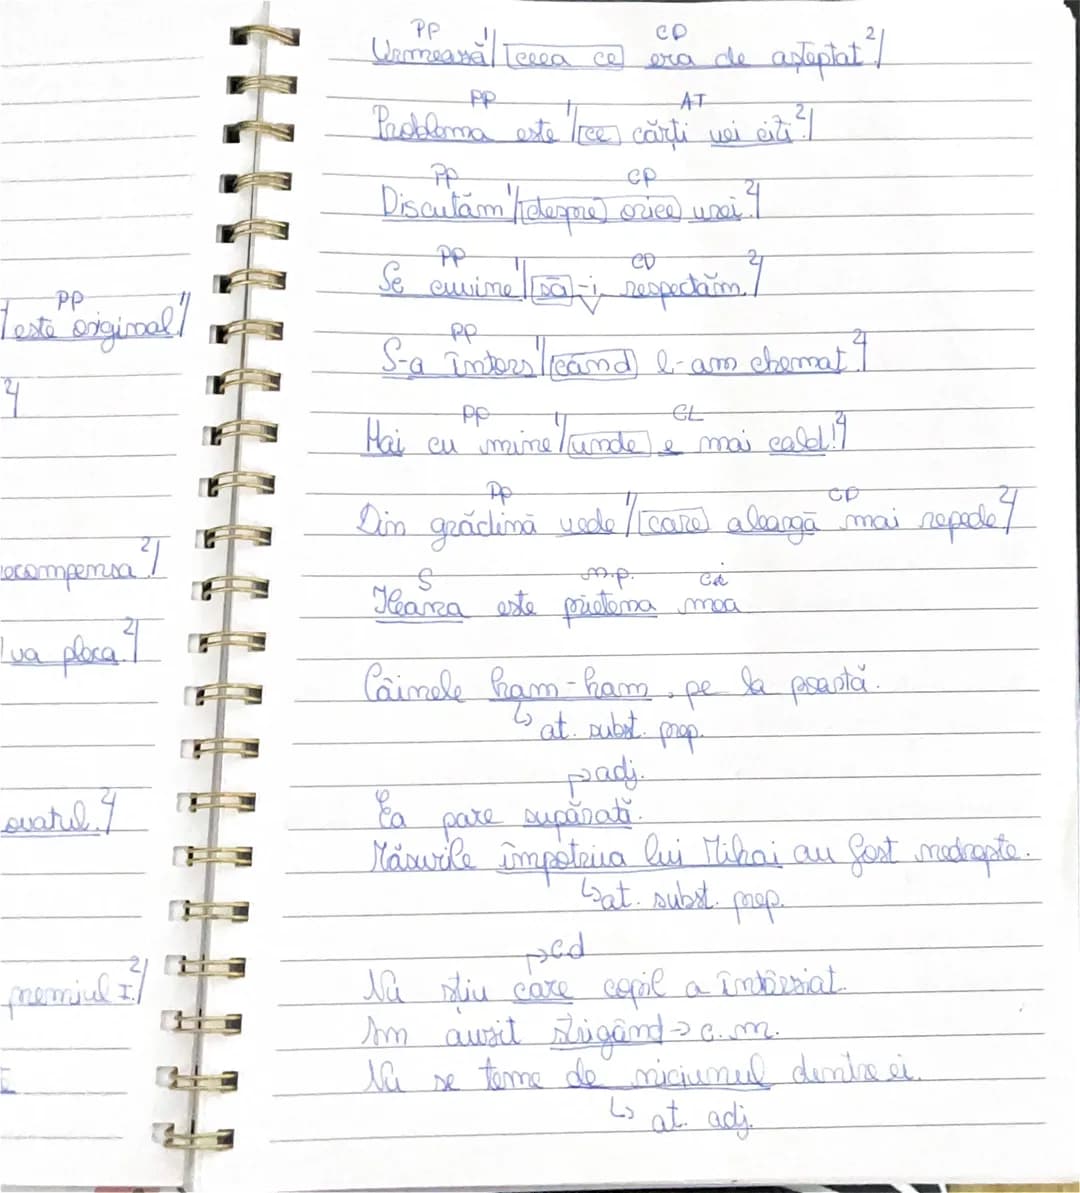 PP 1 CD 2
Urmează / ceea ce era de așteptat /
PP 1 AT 2
Problema este / ce cărți vei citi. /
PP 1 CP 2
Discutăm / despre orice vrei. /
PP 1 CD 2
Se cuvine / să-i respectăm. /
PP 1 2
S-a întors / când l-am chemat. /
PP 1 CL 2
Hai cu mine / unde e mai cald! /
PP 1 CD 2
Din grădină vede / care aleargă mai repede. /
S n.p.
Ileana este prietena mea
Câinele ham-ham, pe la poartă.
↳ at. subst. prep.
↱ adj.
Ea pare supărată.
Măsurile împotriva lui Mihai au fost nedrepte.
↳ at. subst. prep.
↱ cd
Nu știu care copil a întârziat.
Am auzit strigând → c.m.
Nu se teme de niciunul dintre ei.
↳ at. adj.
PP 1
este original. /
2/
recompensa. 2/
va pleca. 2/
2/
premiul I. 2/